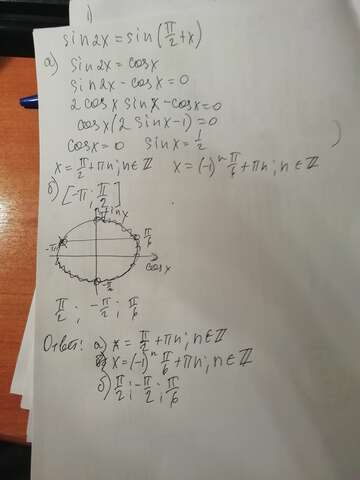 1)
sin2x = sin(π/2 + x)
а) sin2x = cosx
sin2x - cosx = 0
2 cosx sinx - cosx = 0
cosx(2 sinx - 1) = 0
cosx = 0 sinx = 1/2
x = π/2 + πn; n ∈ Z x = (-1)ⁿ π/6 + πn; n ∈ Z
б) [-π; π/2]
sinx
-π π/6
cosx
-π/2
π/2; -π/2; π/6
Ответ: а) x = π/2 + πn; n ∈ Z
x = (-1)ⁿ π/6 + πn; n ∈ Z
б) π/2; -π/2; π/6